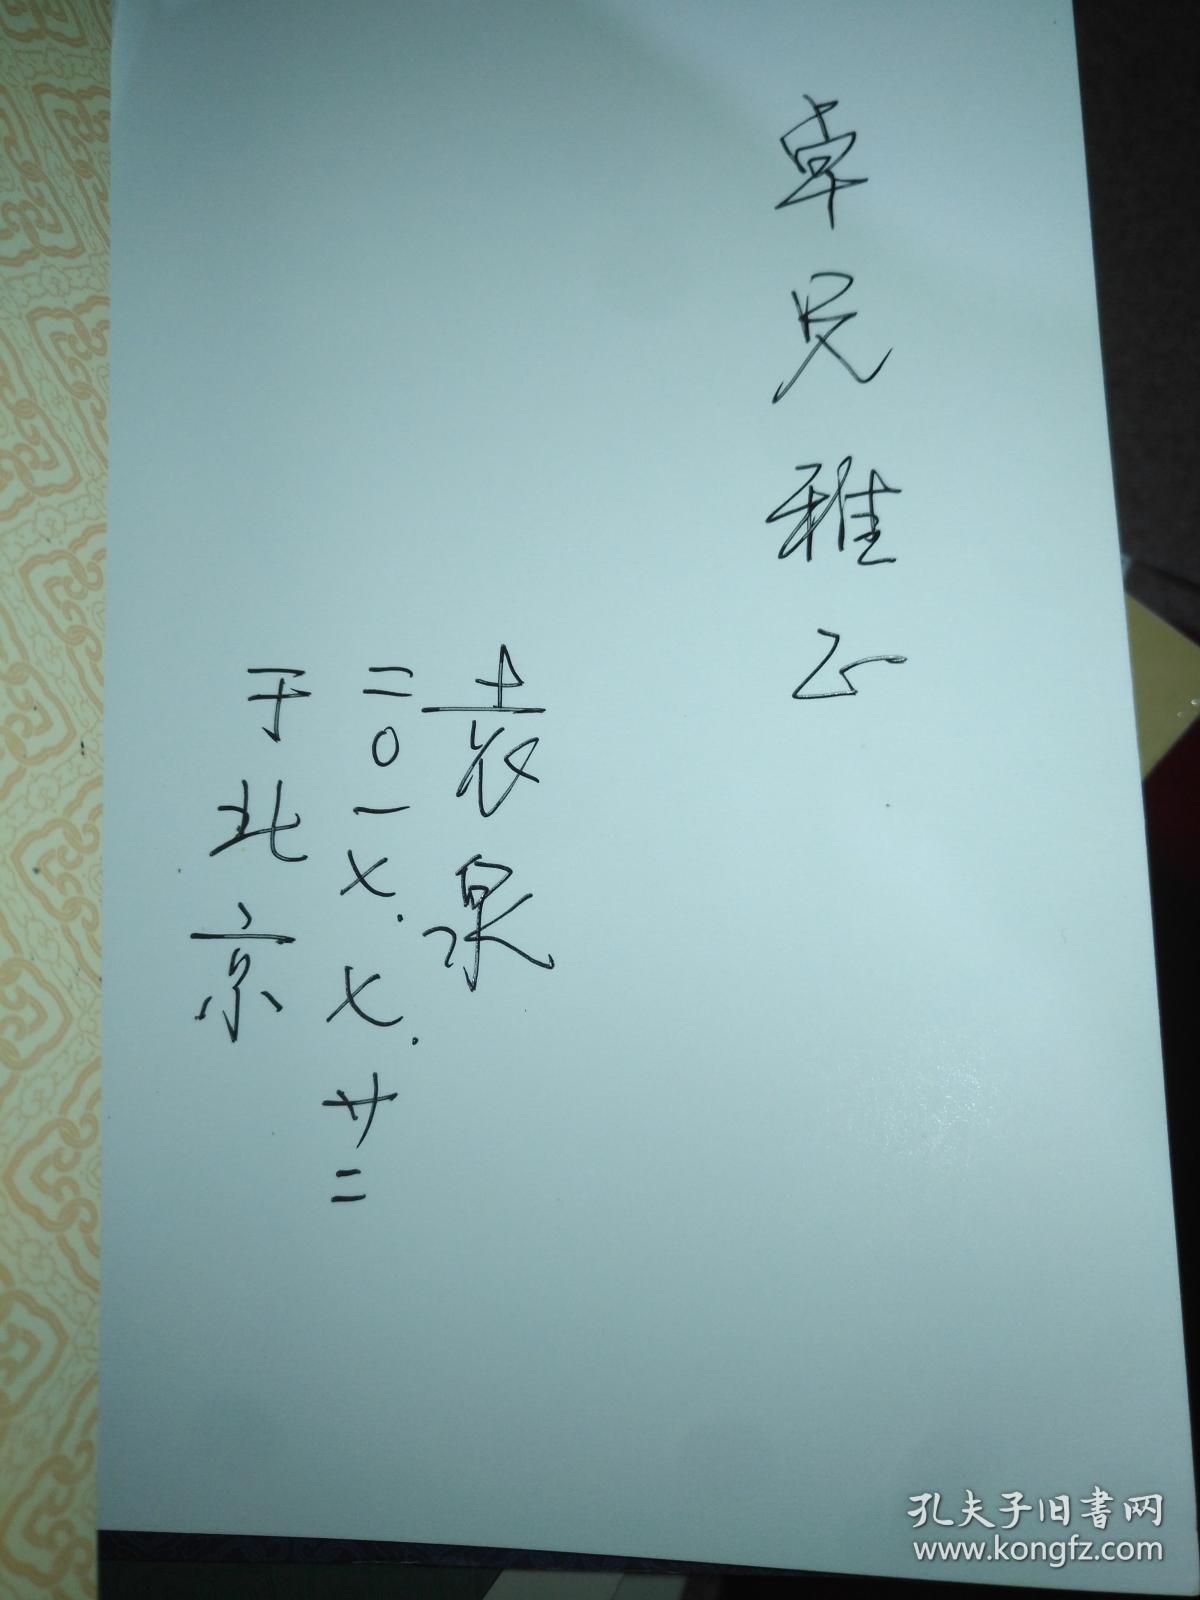 卓兄雅正
袁泉
二〇一七.七.廿二
于北京
孔夫子旧書网
www.kongfz.com